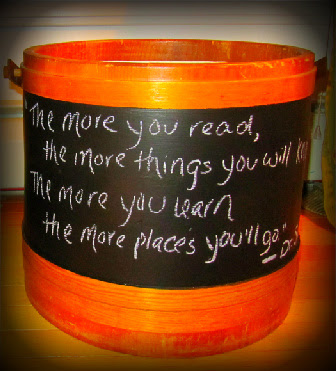 "The more you read,
the more things you will
The more you learn
the more places you'll go."
Dr.